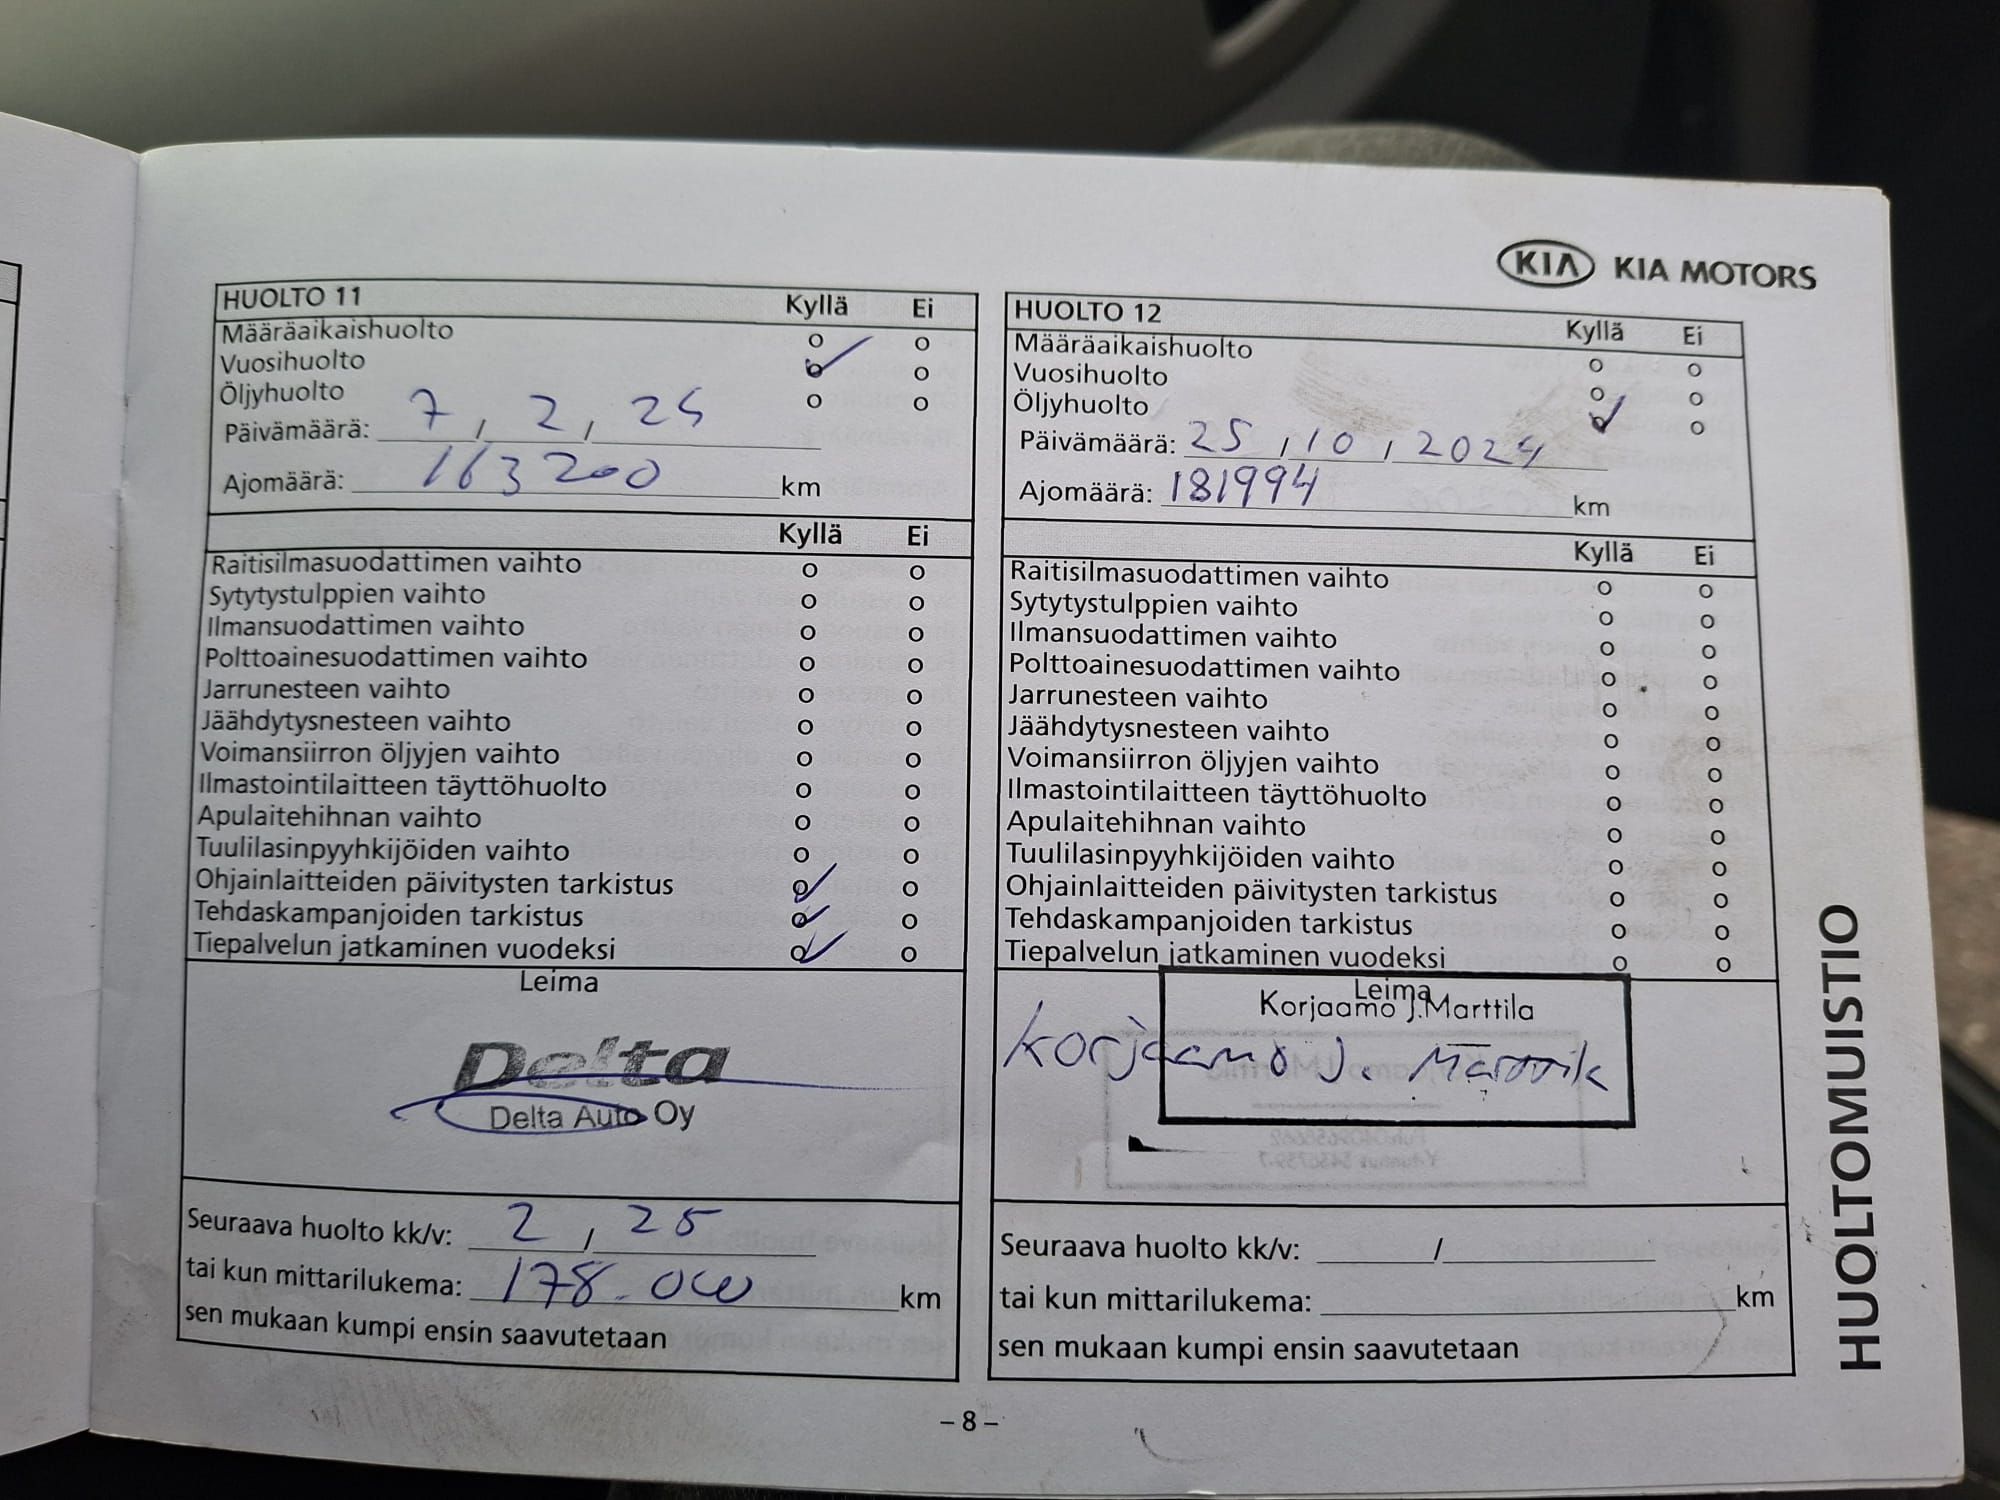 KIA KIA MOTORS
HUOLTO 11 Kyllä Ei
Määräaikaishuolto o o
Vuosihuolto o o
Öljyhuolto o o
Päivämäärä: 7 / 2 / 25
Ajomäärä: 163200 km
Kyllä Ei
Raitisilmasuodattimen vaihto o o
Sytytystulppien vaihto o o
Ilmansuodattimen vaihto o o
Polttoainesuodattimen vaihto o o
Jarrunesteen vaihto o o
Jäähdytysnesteen vaihto o o
Voimansiirron öljyjen vaihto o o
Ilmastointilaitteen täyttöhuolto o o
Apulaitehihnan vaihto o o
Tuulilasinpyyhkijöiden vaihto o o
Ohjainlaitteiden päivitysten tarkistus o o
Tehdaskampanjoiden tarkistus o o
Tiepalvelun jatkaminen vuodeksi o o
Leima
Delta
Delta Auto Oy
Seuraava huolto kk/v: 2 / 25
tai kun mittarilukema: 178.000 km
sen mukaan kumpi ensin saavutetaan
HUOLTO 12 Kyllä Ei
Määräaikaishuolto o o
Vuosihuolto o o
Öljyhuolto o o
Päivämäärä: 25 / 10 / 2024
Ajomäärä: 181994 km
Kyllä Ei
Raitisilmasuodattimen vaihto o o
Sytytystulppien vaihto o o
Ilmansuodattimen vaihto o o
Polttoainesuodattimen vaihto o o
Jarrunesteen vaihto o o
Jäähdytysnesteen vaihto o o
Voimansiirron öljyjen vaihto o o
Ilmastointilaitteen täyttöhuolto o o
Apulaitehihnan vaihto o o
Tuulilasinpyyhkijöiden vaihto o o
Ohjainlaitteiden päivitysten tarkistus o o
Tehdaskampanjoiden tarkistus o o
Tiepalvelun jatkaminen vuodeksi o o
Leima
Korjaamo J.Marttila
Korjaamo J. Marttila
Seuraava huolto kk/v: /
tai kun mittarilukema: km
sen mukaan kumpi ensin saavutetaan
HUOLTOMUISTIO
– 8 –